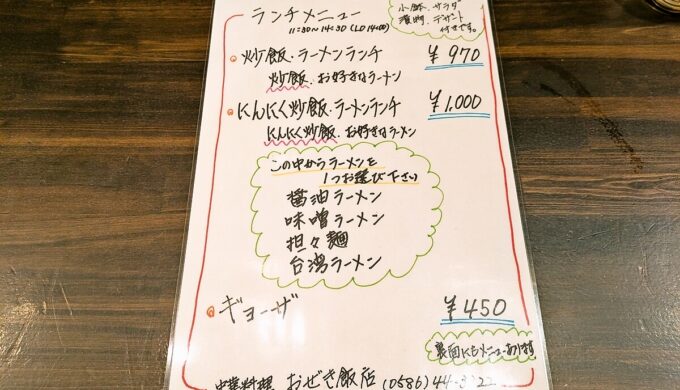 ランチメニュー
11:30~14:30(LO14:00)
小鉢、サラダ
漬物、デザート
付きです。
炒飯・ラーメンランチ ¥970
炒飯、お好きなラーメン
にんにく炒飯・ラーメンランチ ¥1,000
にんにく炒飯、お好きなラーメン
この中からラーメンを
1つお選び下さい
醤油ラーメン
味噌ラーメン
担々麺
台湾ラーメン
ギョーザ ¥450
裏面にもメニューあります
中華料理 おぜき飯店(0586)44-